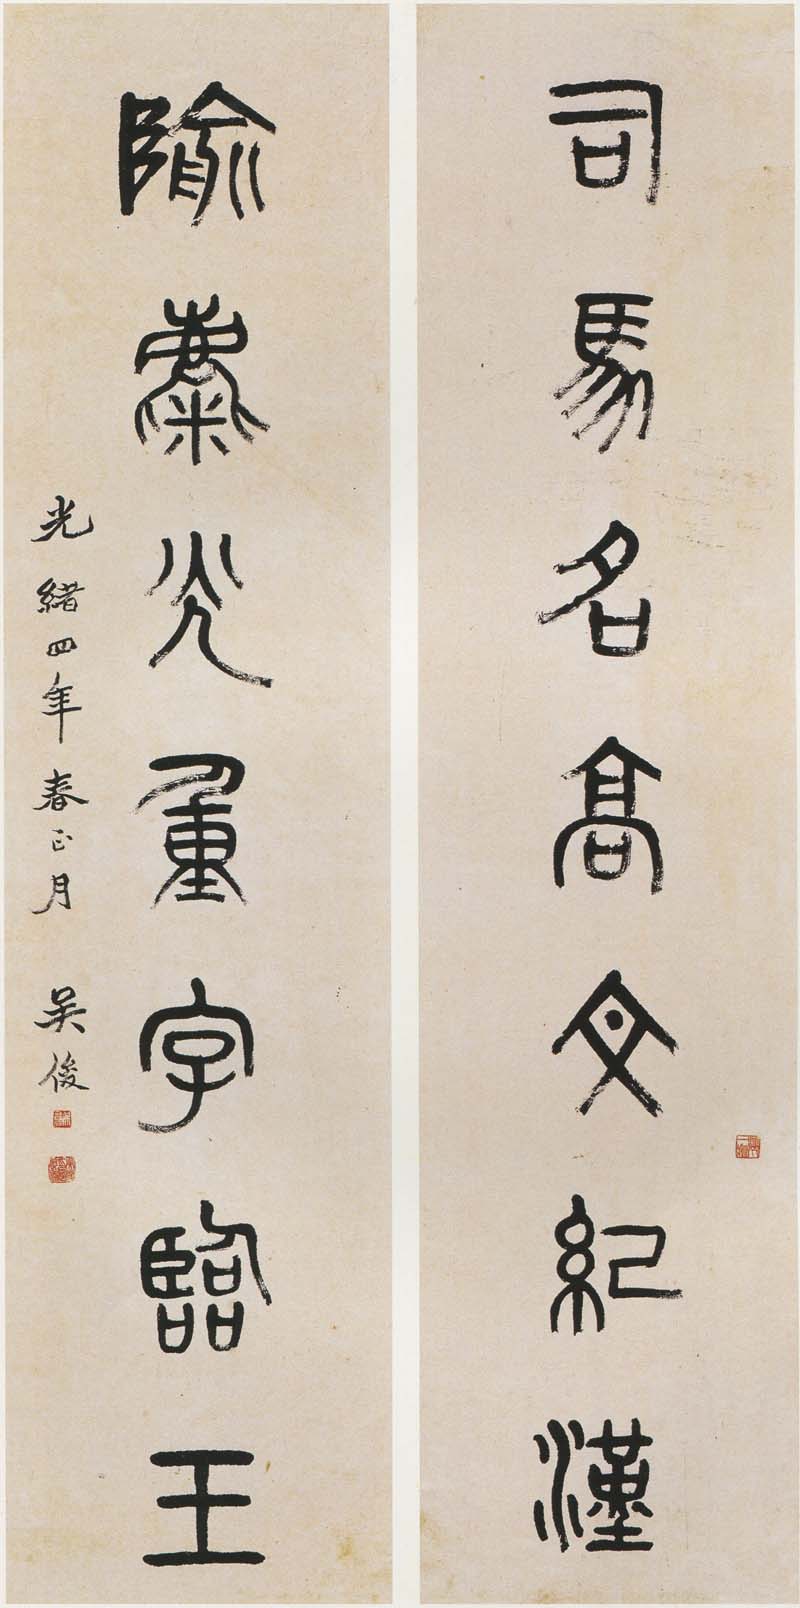 司馬名高文紀漢
隃麋光重字臨王
光緒四年春正月 吳俊